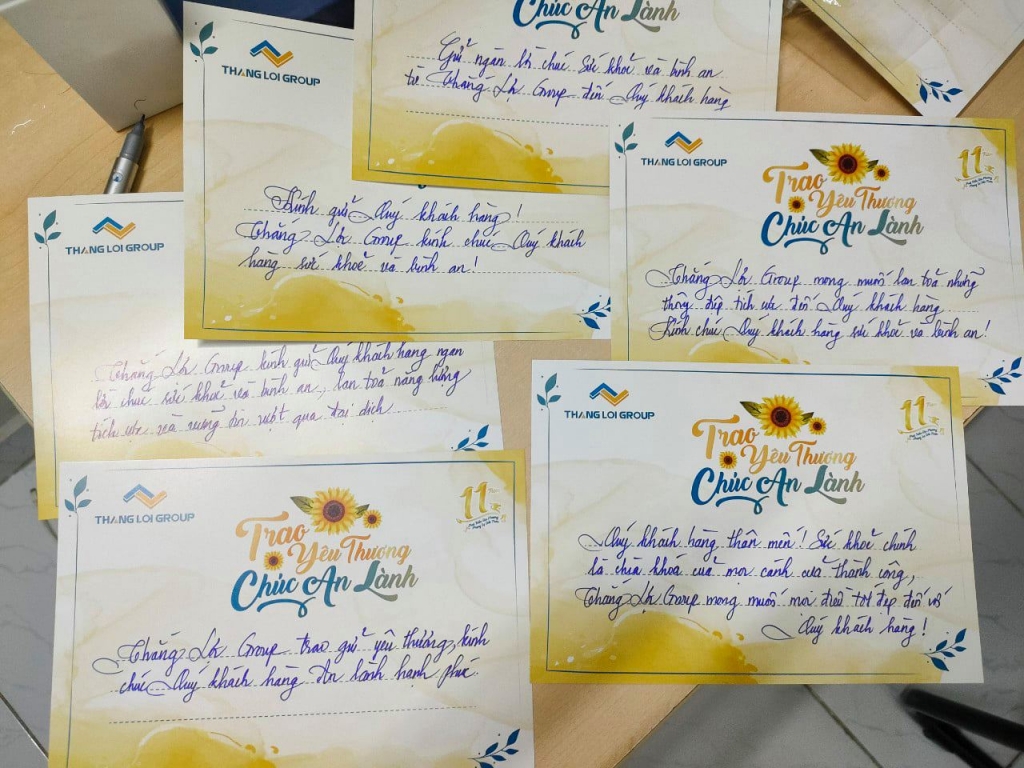 Chúc An Lành
Gửi ngàn lời chúc sức khoẻ và bình an
từ Thắng Lợi Group đến Quý khách hàng
THANG LOI GROUP
Kính gửi Quý khách hàng!
Thắng Lợi Group kính chúc Quý khách
hàng sức khoẻ và bình an!
THANG LOI GROUP
Trao
Yêu Thương
Chúc An Lành
11
Thắng Lợi Group mong muốn lan toả những
thông điệp tích cực đến Quý khách hàng
Kính chúc Quý khách hàng sức khoẻ và bình an!
THANG LOI GROUP
Thắng Lợi Group kính gửi Quý khách hàng ngàn
lời chúc sức khoẻ và bình an, lan toả năng lượng
tích cực và vững tin vượt qua đại dịch
THANG LOI GROUP
Trao
Yêu Thương
Chúc An Lành
11
Quý khách hàng thân mến! Sức khoẻ chính
là chìa khoá của mọi cánh cửa thành công,
Thắng Lợi Group mong muốn mọi điều tốt đẹp đến với
Quý khách hàng!
THANG LOI GROUP
Trao
Yêu Thương
Chúc An Lành
11
Thắng Lợi Group trao gửi yêu thương, kính
chúc Quý khách hàng đón lành hạnh phúc.